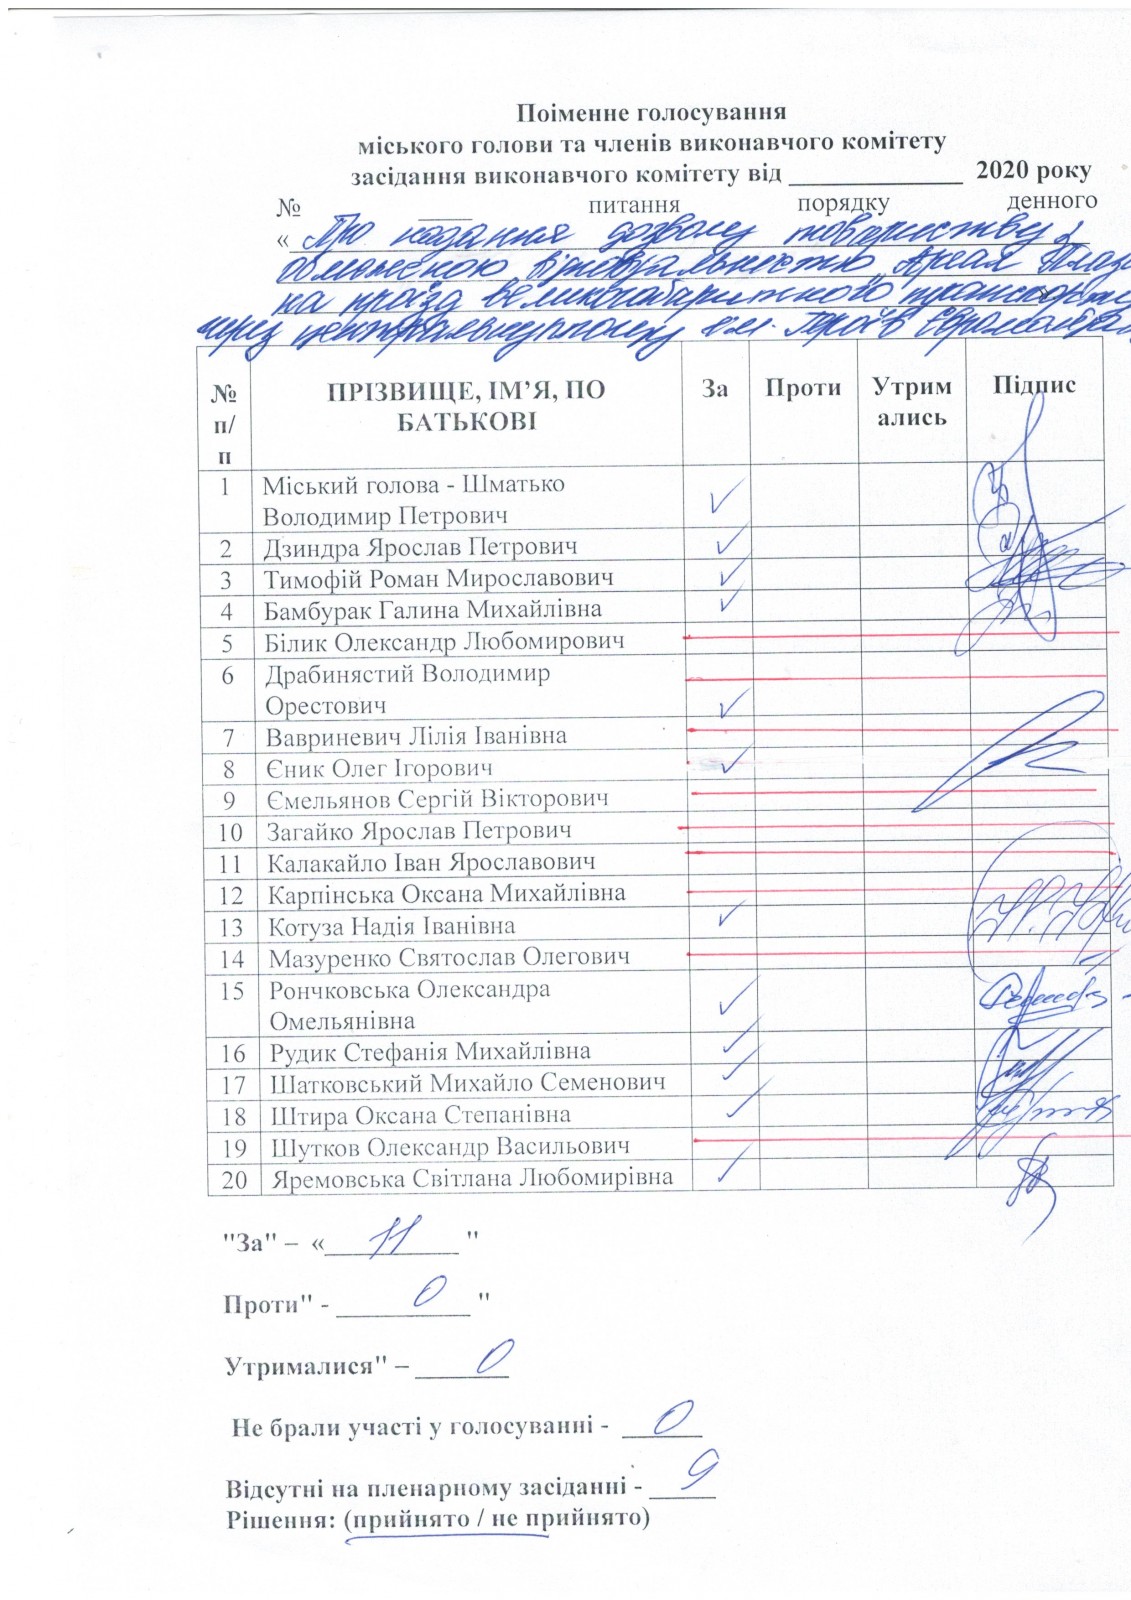 Поіменне голосування
міського голови та членів виконавчого комітету
засідання виконавчого комітету від _____________ 2020 року
№ ____ питання порядку денного
« Про надання дозволу товариству з
обмеженою відповідальністю „Ареал
на проїзд великогабаритного транспорту
через центральну площу ім. Героїв Євромайдану
№ п/п ПРІЗВИЩЕ, ІМ’Я, ПО БАТЬКОВІ За Проти Утримались Підпис
1 Міський голова - Шматько
Володимир Петрович ✓
2 Дзиндра Ярослав Петрович ✓
3 Тимофій Роман Мирославович ✓
4 Бамбурак Галина Михайлівна ✓
5 Білик Олександр Любомирович
6 Драбинястий Володимир
Орестович ✓
7 Вавриневич Лілія Іванівна
8 Єник Олег Ігорович ✓
9 Ємельянов Сергій Вікторович
10 Загайко Ярослав Петрович
11 Калакайло Іван Ярославович
12 Карпінська Оксана Михайлівна
13 Котуза Надія Іванівна ✓
14 Мазуренко Святослав Олегович
15 Рончковська Олександра
Омельянівна ✓
16 Рудик Стефанія Михайлівна ✓
17 Шатковський Михайло Семенович ✓
18 Штира Оксана Степанівна ✓
19 Шутков Олександр Васильович
20 Яремовська Світлана Любомирівна ✓
"За" – « 11 "
Проти" - 0 "
Утрималися" – 0
Не брали участі у голосуванні - 0
Відсутні на пленарному засіданні - 9
Рішення: (прийнято / не прийнято)